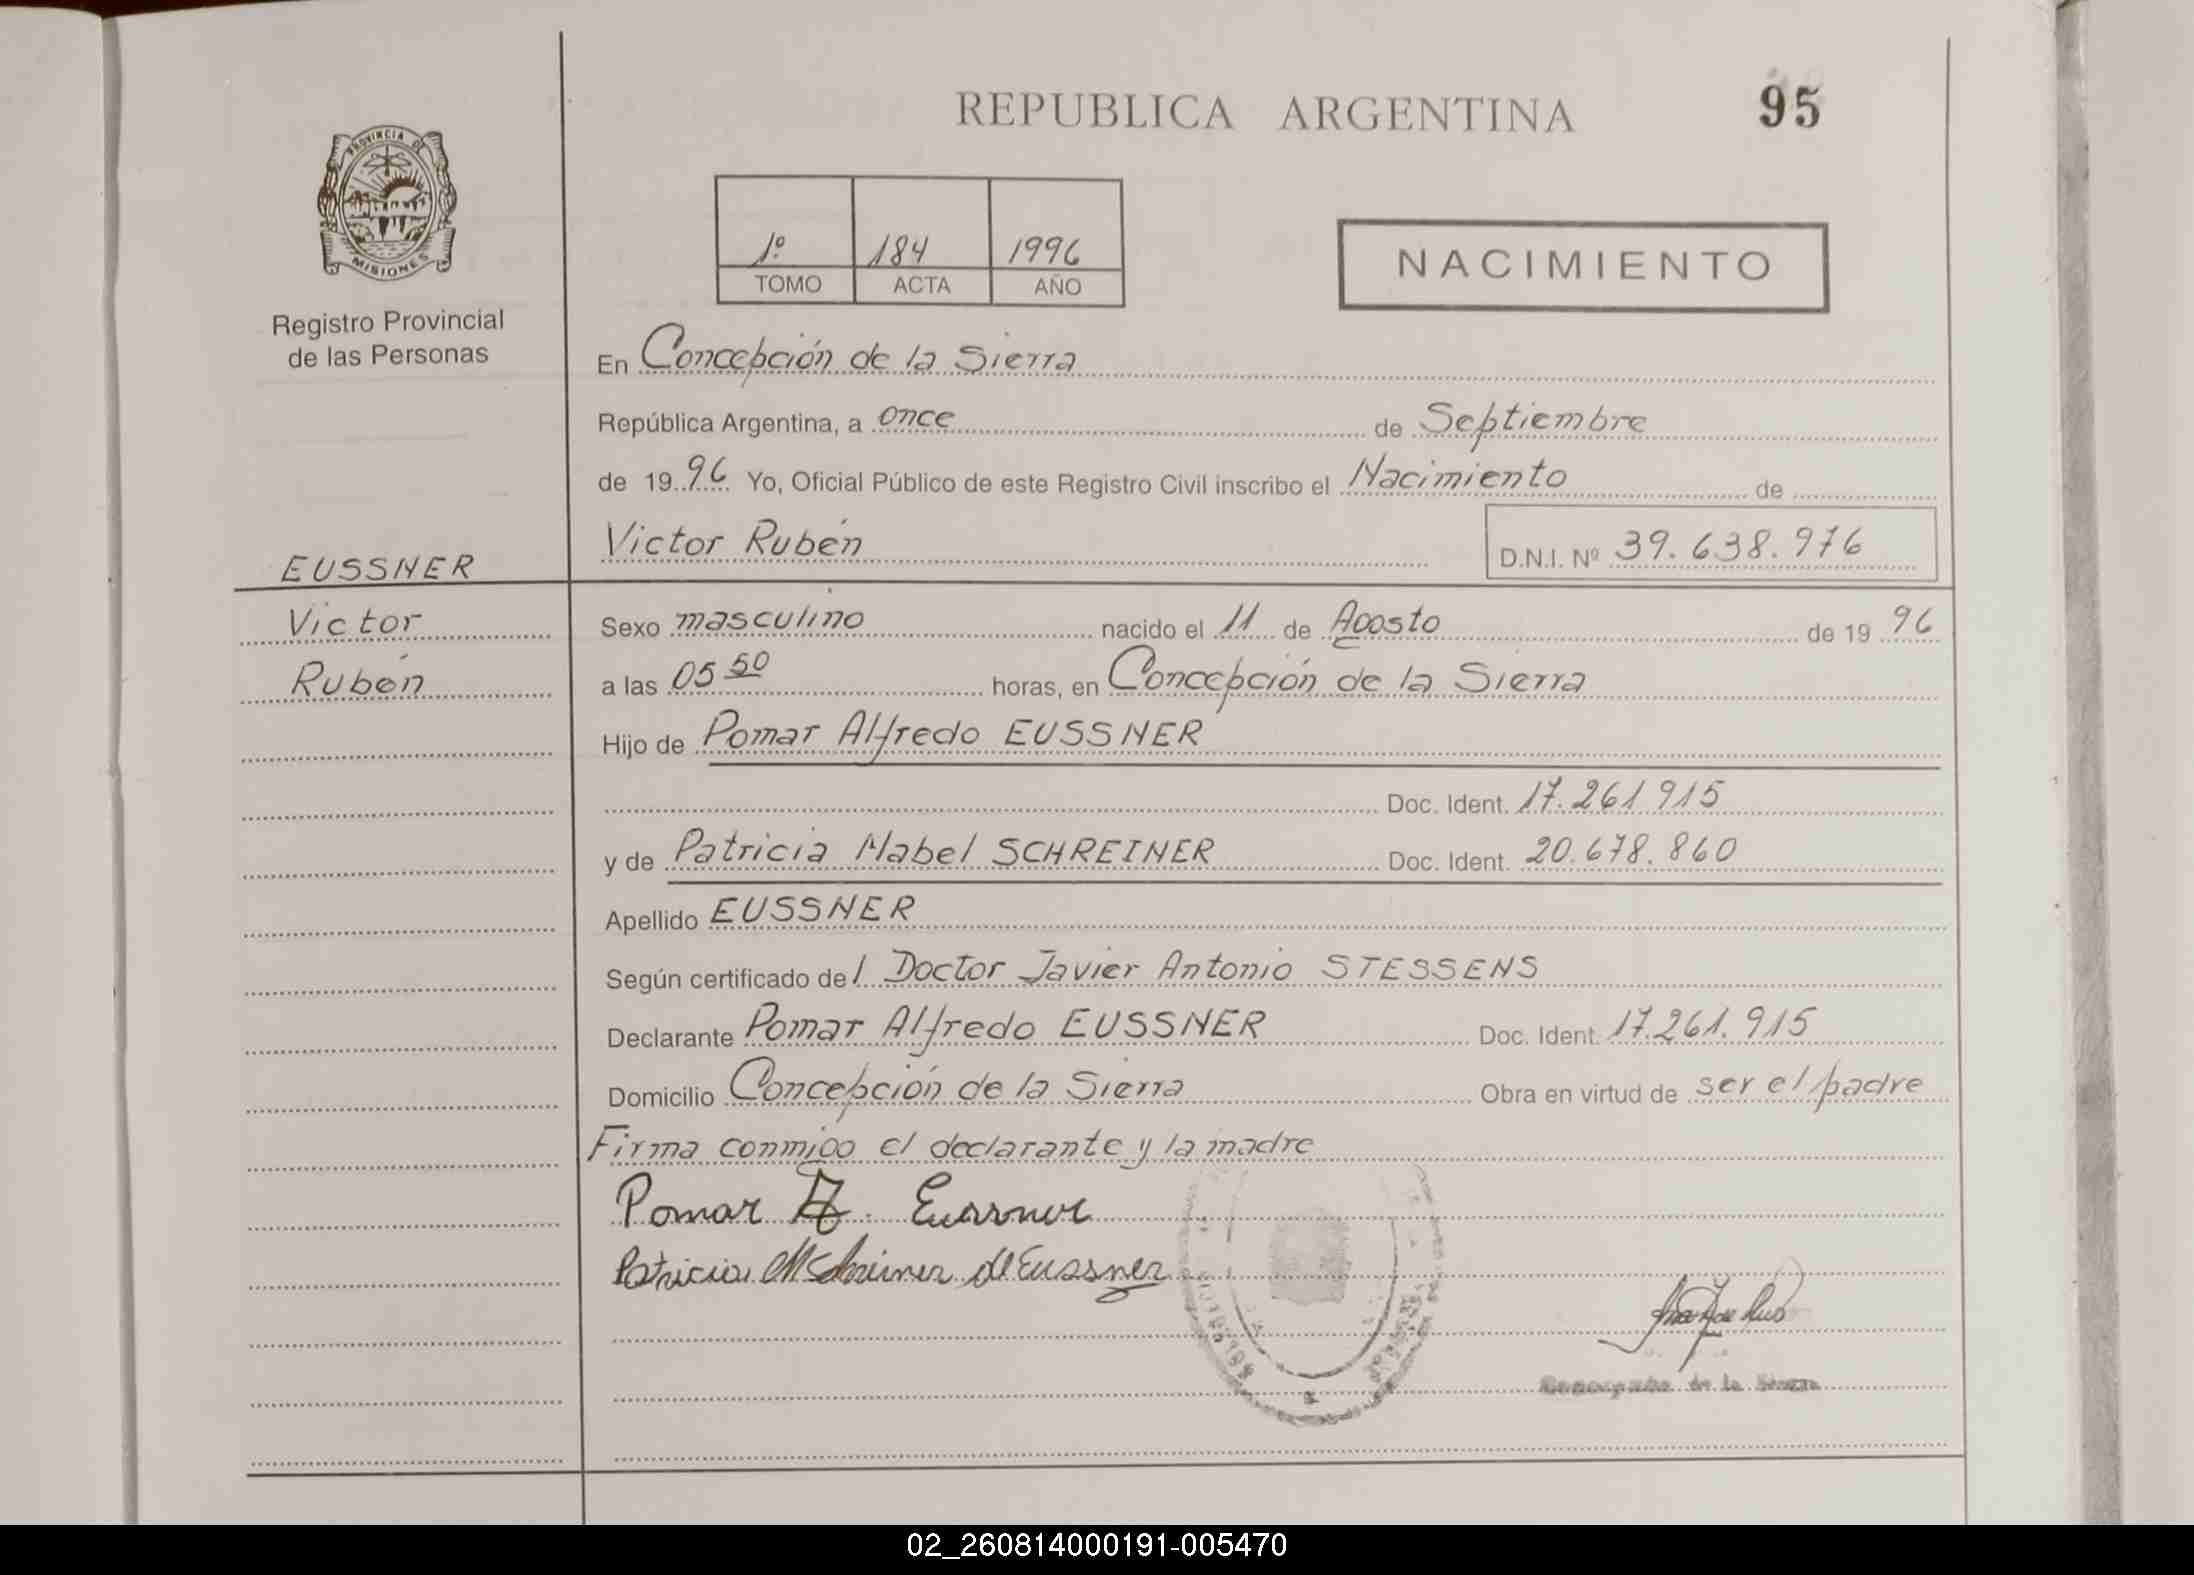 REPUBLICA ARGENTINA 95
PROVINCIA DE
MISIONES
Registro Provincial
de las Personas
1º 184 1996
TOMO ACTA AÑO
NACIMIENTO
En Concepción de la Sierra
República Argentina, a once de Septiembre
de 1996 Yo, Oficial Público de este Registro Civil inscribo el Nacimiento de
Victor Rubén D.N.I. Nº 39.638.976
EUSSNER
Victor
Rubén
Sexo masculino nacido el 11 de Agosto de 1996
a las 05 50 horas, en Concepción de la Sierra
Hijo de Pomar Alfredo EUSSNER
Doc. Ident. 17.261.915
y de Patricia Mabel SCHREINER Doc. Ident. 20.678.860
Apellido EUSSNER
Según certificado del Doctor Javier Antonio STESSENS
Declarante Pomar Alfredo EUSSNER Doc. Ident. 17.261.915
Domicilio Concepción de la Sierra Obra en virtud de ser el padre
Firma conmigo el declarante y la madre
Pomar A. Eussner
Patricia M Schreiner de Eussner
Concepción de la Sierra
02_260814000191-005470